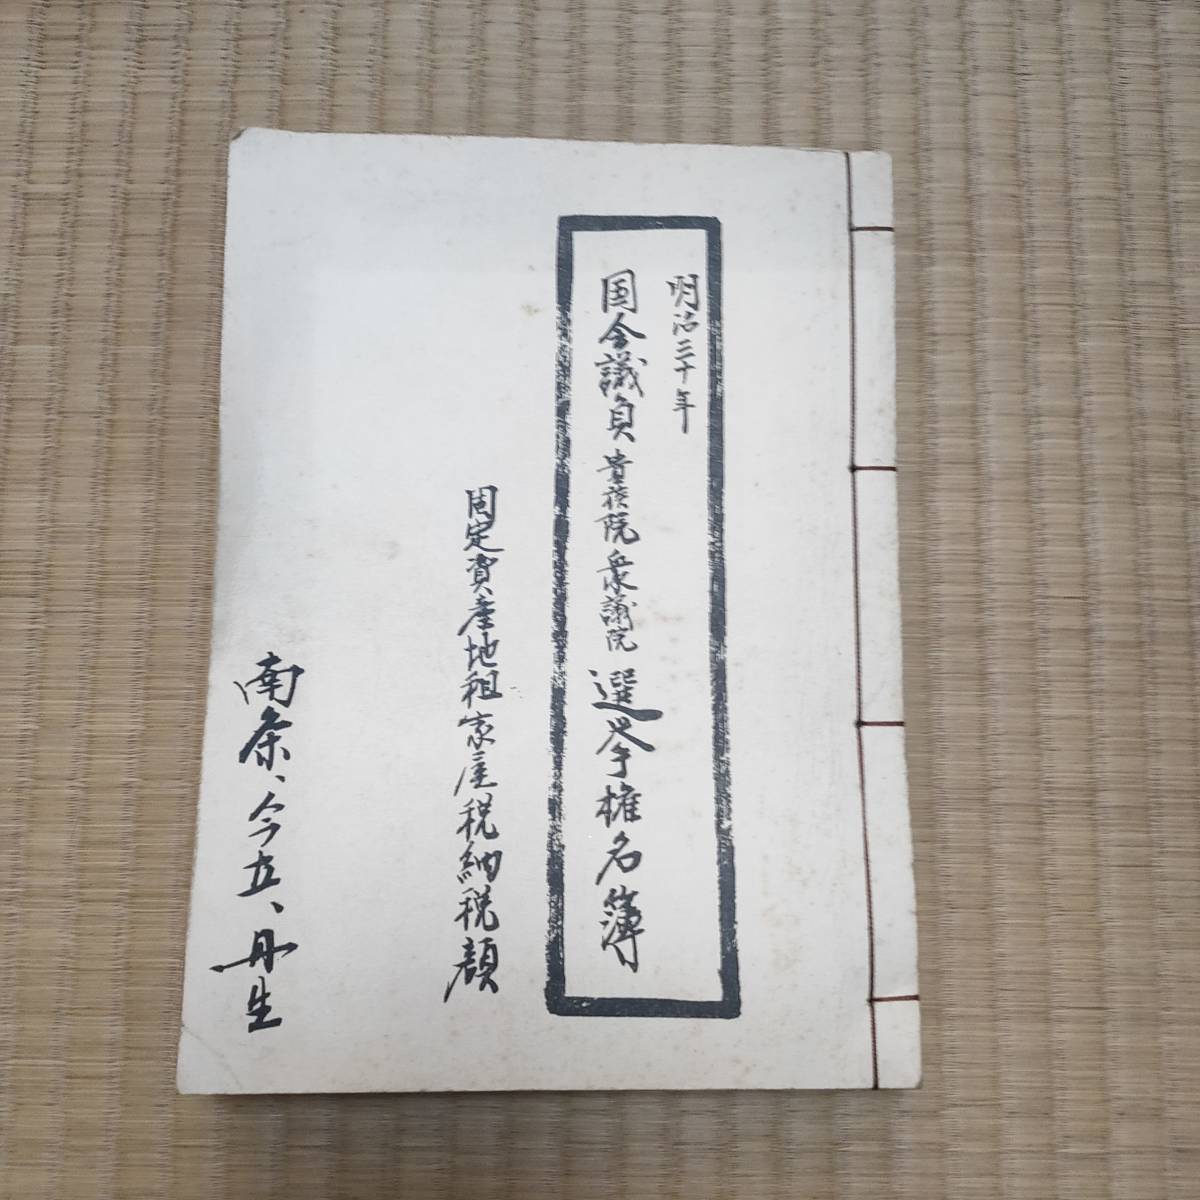 明治三十年
国会議員貴族院衆議院選挙権名簿
固定資産地租家屋税納税額
南条、今立、丹生